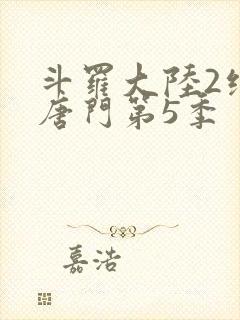 斗羅大陸2絕
唐門第5季
嘉浩